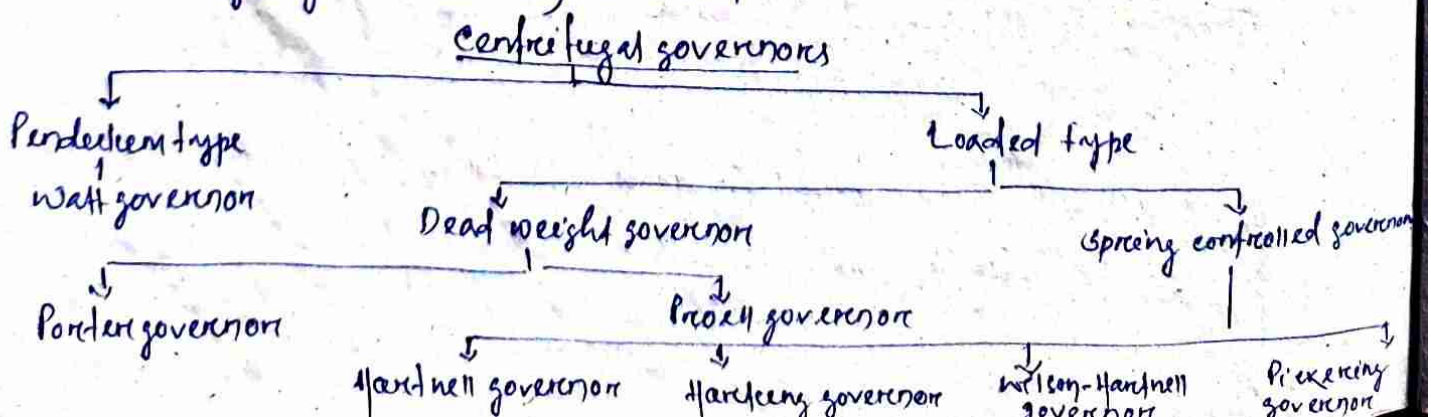 Centrifugal governors
Pendulum type
Loaded type
Watt governor
Dead weight governor
Spring controlled governor
Porter governor
Proell governor
Hartnell governor
Hartung governor
Wilson-Hartnell
governor
Pickering
governor